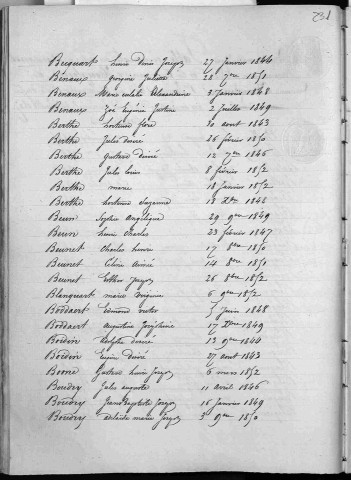 231
Becquart henri Denis Joseph 27 Janvier 1844
Benaux Grégoire Juliette 28 7bre 1851
Benaux Marie eulalie Alexandrine 3 Janvier 1848
Benaux Zoé Eugénie Justine 2 Juillet 1849
Berthe hortense flore 30 aout 1843
Berthe Jules désiré 26 février 1850
Berthe Gustave désiré 12 7bre 1846
Berthe Jules Louis 8 février 1852
Berthe marie 18 Janvier 1852
Berthe hortense 18 Xbre 1848
Beun Sophie Angélique 29 9bre 1849
Beun henri Charles 23 février 1847
Beunet Charles henri 17 8bre 1850
Beunet Céline aimée 14 8bre 1850
Beunet Arthur Joseph 26 8bre 1852
Blanquart marie virginie 6 9bre 1852
Boddaert Edmond victor 5 Juin 1848
Boddaert Augustine Joséphine 17 Xbre 1849
Boidin Adolphe désiré 13 9bre 1844
Boidin Eugène Désiré 27 aout 1843
Boone Gustave henri Joseph 6 mars 1852
Boudry Jules auguste 11 avril 1846
Boudry Jean Baptiste Joseph 16 Janvier 1849
Boudry adelaïde marie Joseph 3 9bre 1850